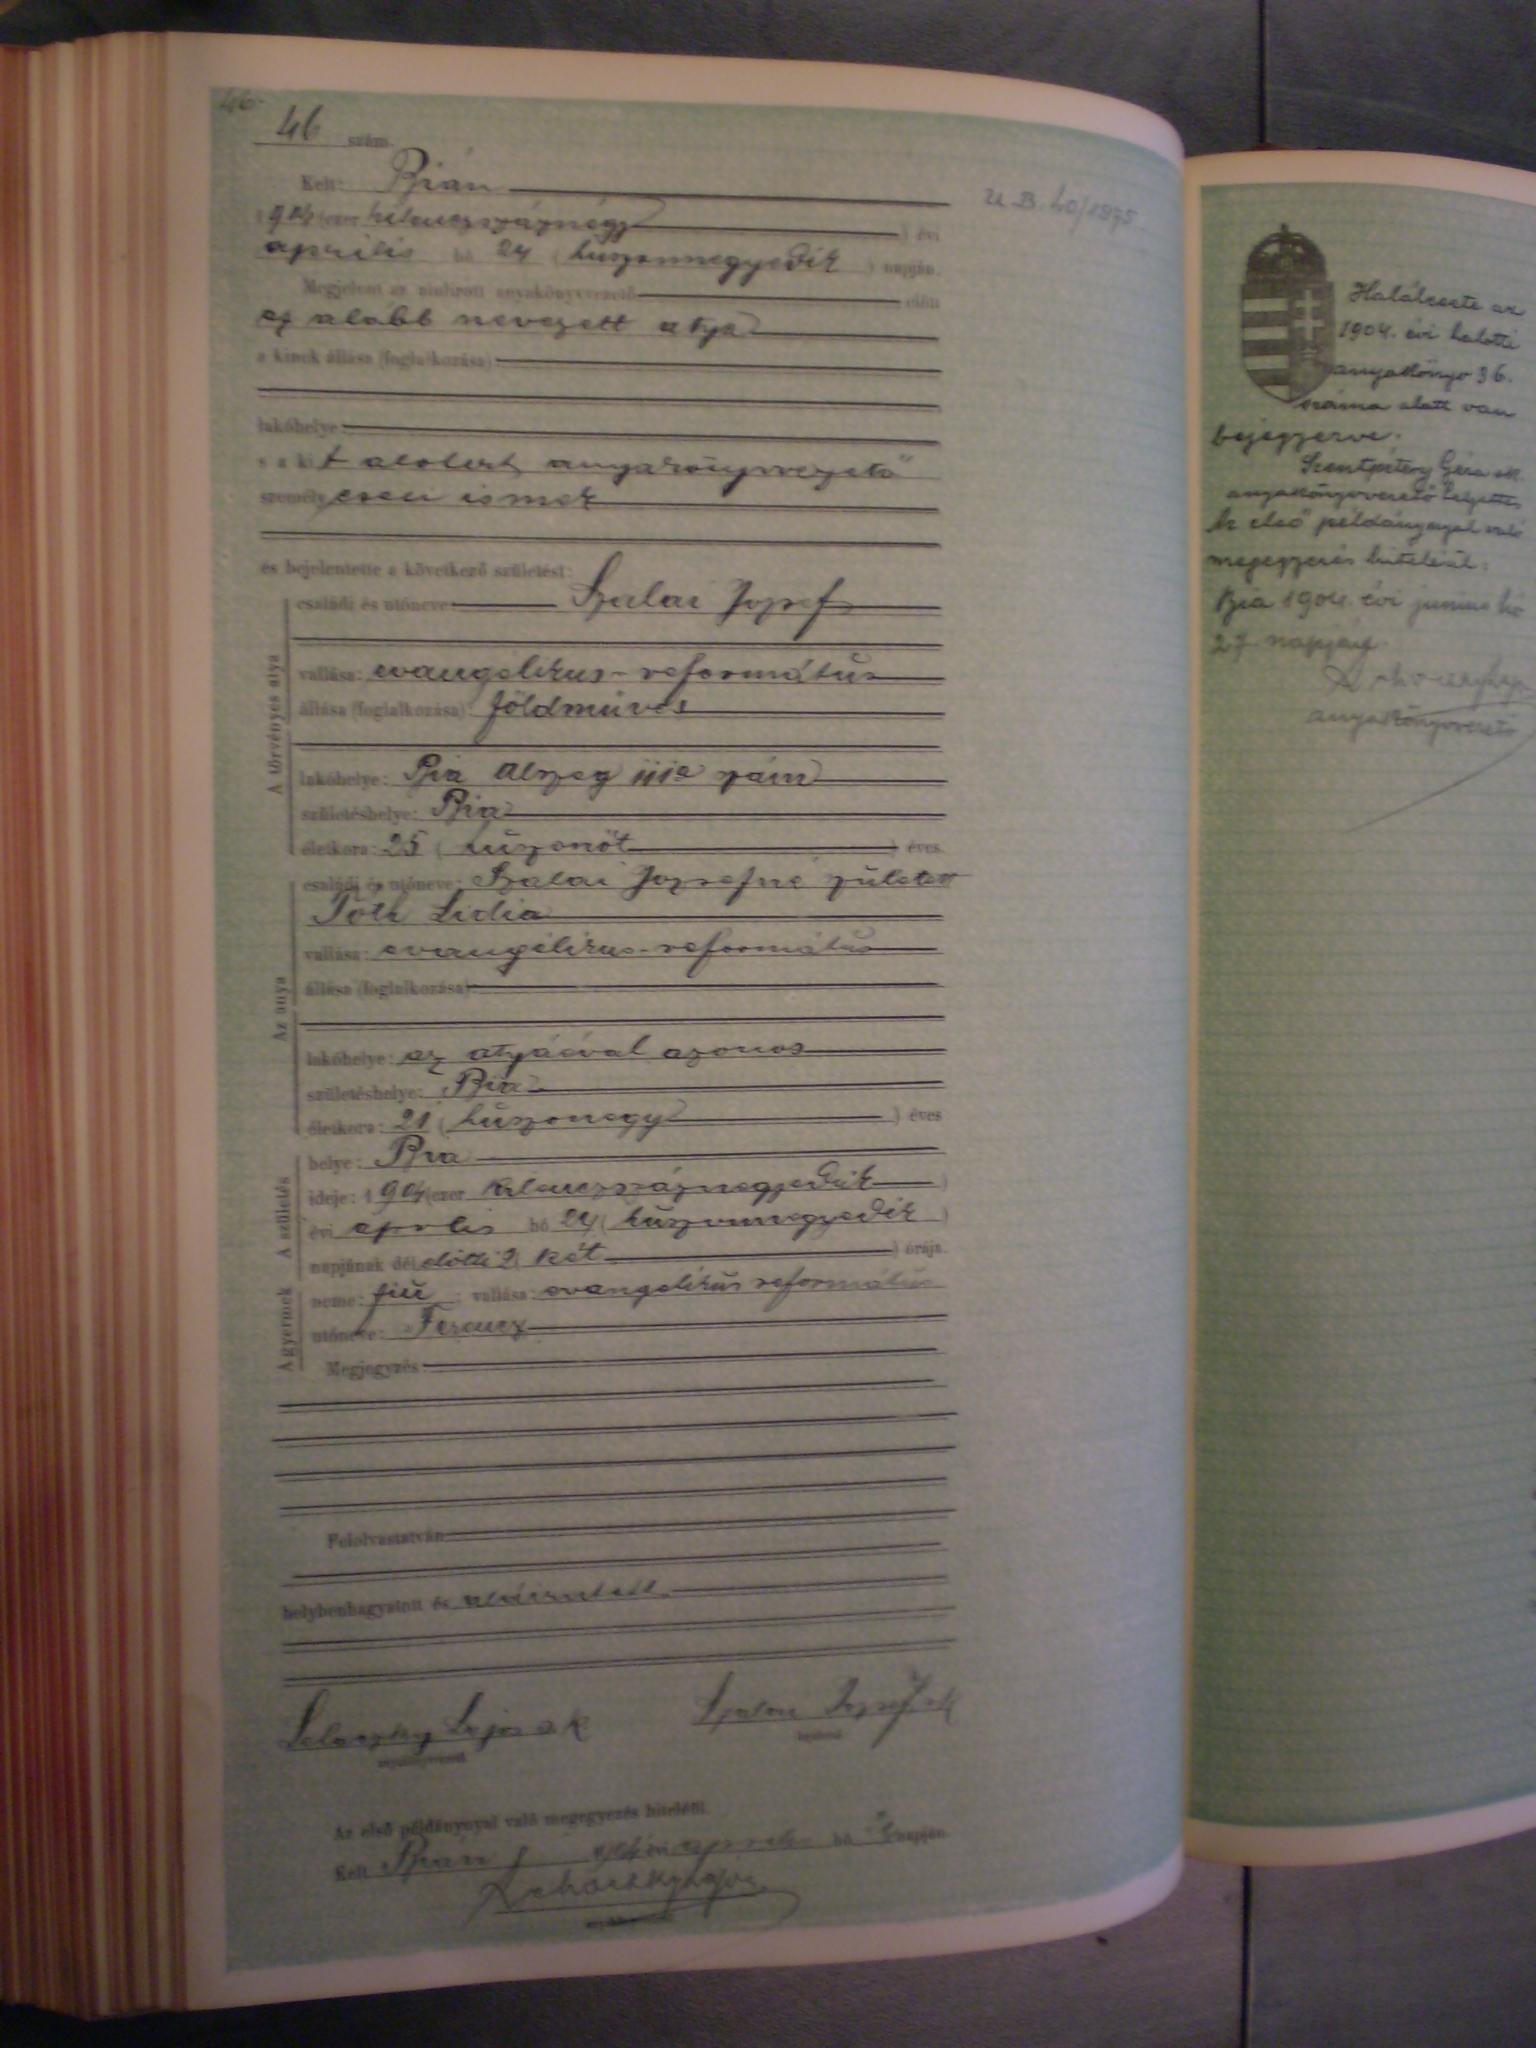 46.
46 szám.
Kelt: Bián
1904 (ezer kilencszáznégy) évi
április hó 24 (huszonnegyedik) napján.
Megjelent az alulirott anyakönyvvezető előtt
az alább nevezett atya
a kinek állása (foglalkozása)
lakóhelye:
s a kit alolirt anyakönyvvezető
személyesen ismer
és bejelentette a következő születést:
A törvényes atya
családi és utóneve: Szalai Jozsef
vallása: evangelikus-református
állása (foglalkozása): földmüves
lakóhelye: Bia Alszeg szám
születéshelye: Bia
életkora: 25 (huszonöt) éves.
Az anya
családi és utóneve: Szalai Jozsefné született
Tóth Lidia
vallása: evangélikus-református
állása (foglalkozása):
lakóhelye: az atyáéval azonos
születéshelye: Bia
életkora: 21 (huszonegy) éves
A születés
helye: Bia
ideje: 1904 (ezer kilencszáznegyedik)
évi április hó 24 (huszonnegyedik)
napjának délelőtti 2 (két) órája.
A gyermek
neme: fiu; vallása: evangelikus református
utóneve: Ferencz
Megjegyzés:
Felolvastatván
helybenhagyatott és aláiratott.
Lajos s.k. Szalai Jozsef s.k.
anyakönyvvezető bejelentő
Az első példánynyal való megegyezés hiteléül.
Kelt Bián, április hó napján.
U. B. 40/1975.
Halálesete az
1904. évi halotti
anyakönyv 36.
száma alatt van
bejegyezve.
Szentpétery Géza s.k.
anyakönyvvezető helyettes
Az első példánynyal való
megegyezés hiteléül:
Bia 1904. évi junius hó
27. napján
anyakönyvvezető